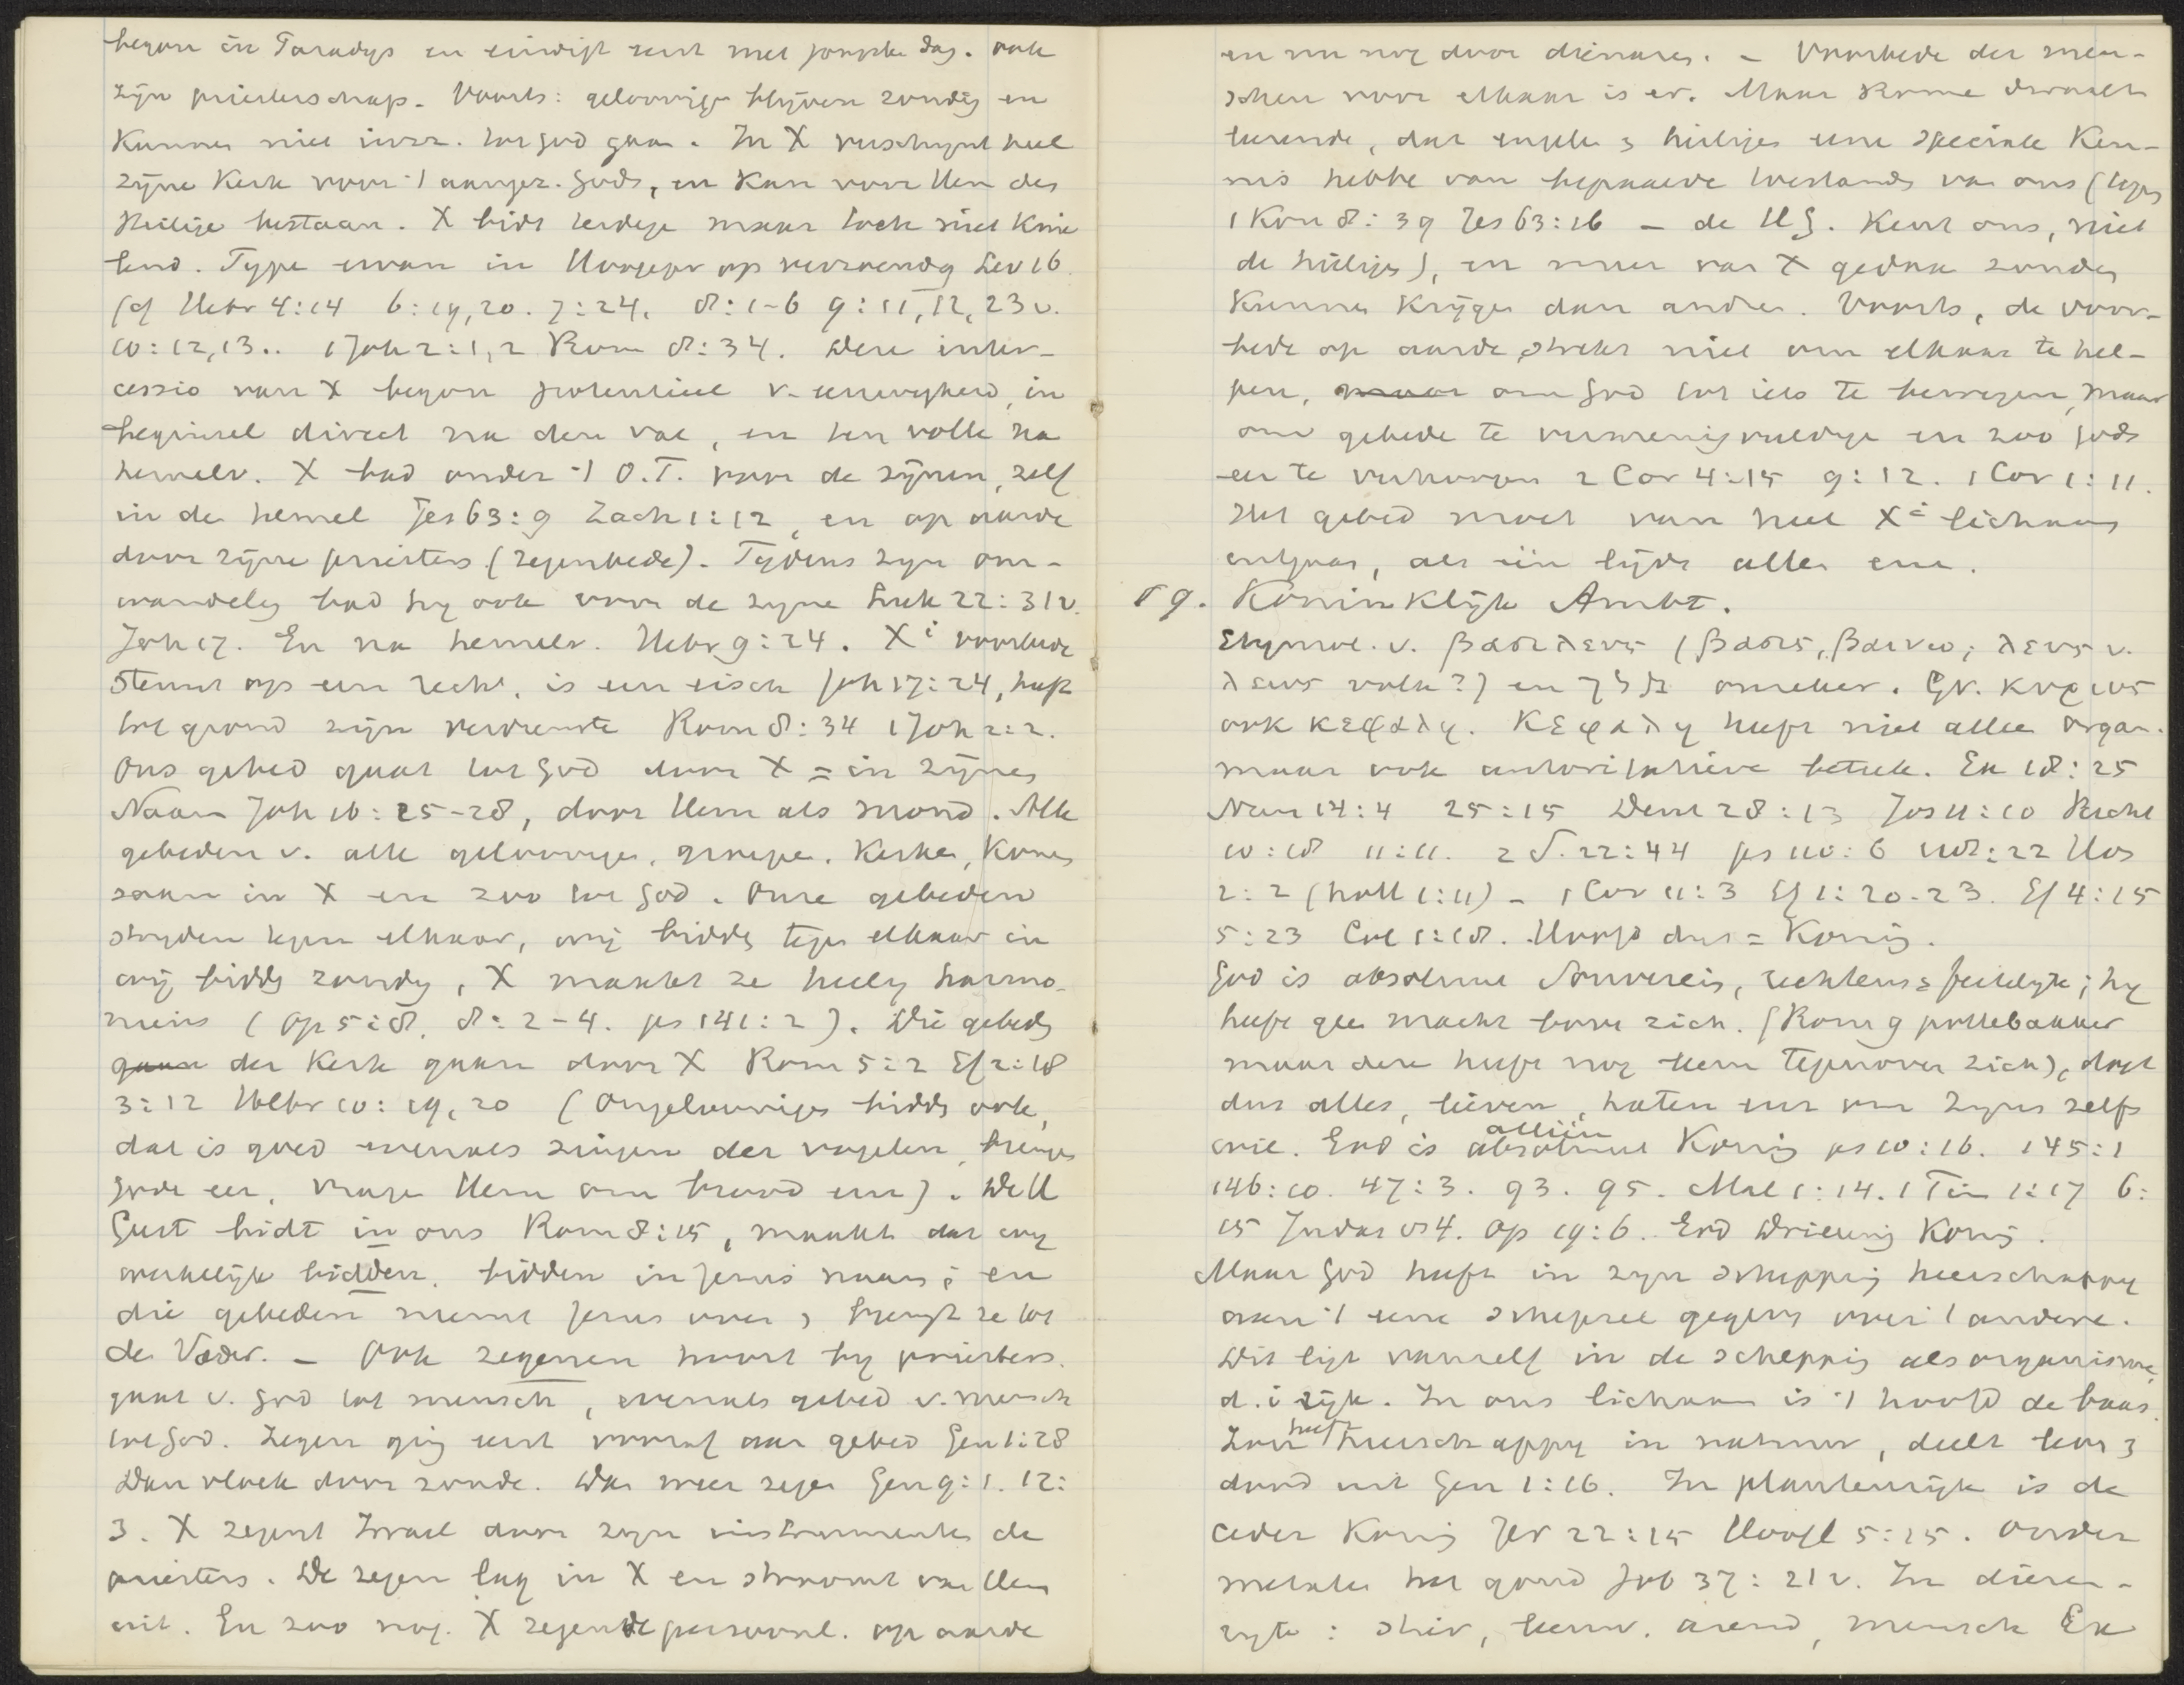 begon in Paradys en eindigt eerst met jongste dag. ook
zijn priesterschap. Voorts: geloovige blijven zondig en
kunnen niet tot God gaan. In X verschynt heel
zijne Kerk voor 't aangez. Gods, en kan voor Hem des
Heilige bestaan. X bidt maar toch niet knie
lend. Type ervan in Hoogepr op verzoendg Lev 16
(cf Hebr 4:14 6:19,20. 7:24. 8:1-6 9:11,12,23v.
10:12,13.. 1 Joh 2:1,2 Rom 8:34. Deze inter-
cessio van X begon potentieel v. eeuwigheid, in
beginsel direct na den val, en ten volle na
hemelv. X bad onder 't O.T. voor de zijnen, zelf
in de hemel Jes 63:9 Zach 1:12, en op aarde
door zijne priesters (zegenbede). Tijdens zyn om-
wandeling bad hy ook voor de zyne Luk 22:31v.
Joh 17. En na hemelv. Hebr 9:24. Xi voorbede
steunt op een recht, is een eisch Joh 17:24, heeft
tot grond zijn verdienste Rom 8:34 1 Joh 2:2.
Ons gebed gaat tot God door X = in zijnen
Naam Joh 16:25-28, door Hem als mond. Alle
gebeden v. alle geloovigen, groepe, Kerken, komen
saam in X en zoo tot God. Onze gebeden
stryden tegen elkaar, wij bidden tegen elkaar in
wij bidden zondig, X maakt ze heilig harmo-
nieus (Op 5:8. 8:2-4. ps 141:2). Die gebeden
gaan der Kerk gaan door X Rom 5:2 Ef 2:18
3:12 Hebr 10:19,20 (Ongeloovigen bidden ook,
dat is goed evenals zingen der vogelen, brengen
Gode eer, vragen Hem om brood enz). De H
Geest bidt in ons Rom 8:15, maakt dat wy
werkelijk bidden, bidden in Jezus naam; en
die gebeden neemt Jezus over, brengt ze tot
de Vader. - Ook zegenen hoort by priesters.
gaat v. God tot mensch, evenals gebed v. mensch
tot God. Zegen ging eerst vooraf aan gebed Gen 1:28
Dan vloek door zonde. Dan weer zegen Gen 9:1. 12:
3. X zegent Israel door zyn instrumenten de
priesters. De zegen lag in X en stroomt van Hem
uit. En zoo nog. X zegende persoonl. op aarde
en nu nog door dienaren. - Voorbede der men-
schen voor elkaar is er. Maar Rome dwaalt
leerende, dat engelen & heiligen eene speciale Ken-
nis hebbe van bepaalde toestanden van ons (tegen
1 Kon 8:39 Jes 63:16 - de HG. Kent ons, niet
de heiligen), en meer van X gedaan zouden
kunnen krijgen dan andren. Voorts, de voor-
bede op aarde strekt niet om elkaar te hel-
pen, maar om God tot iets te bewegen, maar
om gebede te vermenigvuldige en zoo Gods
eer te verhoogen 2 Cor 4:15 9:12. 1 Cor 1:11.
Het gebed moet van heel Xi lichaam
uitgaan, als één lijdt alle ene.
§ 9. Koninklijk Ambt.
Etymol. v. βασιλευς (βασις, βαινω; λευς v.
λεως volk?) en מלך onzeker. Gr. κυριος
ook κεφαλη. Κεφαλη heeft niet allee organ.
maar ook autoritatieve betek. Ex 18:25
Num 14:4 25:15 Deut 28:13 Jos 11:10 Richt
10:18 11:11. 2 S. 22:44 ps 110:6 118:22 Hos
2:2 (holl 1:11) - 1 Cor 11:3 Ef 1:20-23. Ef 4:15
5:23 Col 1:18. Hoofd dus = Koning.
God is absoluut Souverein, rechtens & feitelyk; hy
heeft gee macht boven zich. (Rom 9 pottebakker
maar deze heeft nog leem tegenover zich), doet
dus alles, lieven, haten enz om Zyns zelfs
wil. God is absoluut alléén Koning ps 10:16. 145:1
146:10. 47:3. 93. 95. Mal 1:14. 1 Tim 1:17 6:
15 Judas vs 4. Op 19:6. God Drieenig Koning.
Maar God heeft in zyn schepping heerschappy
aan 't eene schepsel gegeven over 't andere.
Dit ligt vanzelf in de schepping als organisme,
d.i rijk. In ons lichaam is 't hoofd de baas.
Zon heeft heerschappy in natuur, deelt leven &
dood uit Gen 1:16. In plantenrijk is de
ceder Koning Jer 22:15 Hoogl 5:15. Onder
metalen het goud Job 37:21v. In dieren-
ryk: stier, leeuw, arend, mensch Ez